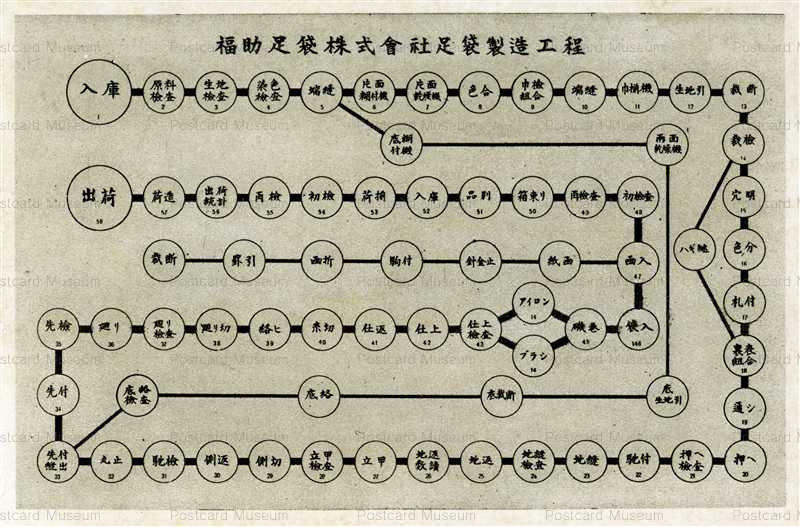 福助足袋株式會社足袋製造工程
入庫 1
原料検査 2
生地検査 3
染色検査 4
端縫 5
片面糊付機 6
片面乾燥機 7
色合 8
巾検組合 9
端縫 10
巾揃機 11
生地引 12
裁断 13
底糊付機
両面乾燥機
裁検 14
穴明 15
色分 16
札付 17
裏表組合 18
通シ 19
押ヘ 20
押ヘ検査 21
馳付 22
地縫 23
地縫検査 24
地返 25
26
立甲 27
立甲検査 28
側切 29
側返 30
馳検 31
丸止 32
先付縫出 33
先付 34
先検 35
廻り 36
廻り検査 37
廻り切 38
39
糸切 40
仕返 41
仕上 42
仕上検査 43
アイロン
ブラシ
45
46
函入 47
裁断
罫引
函折
駒付
針金止
紙函
初検査 48
再検査 49
箱束り 50
品別 51
入庫 52
荷揃 53
初検
再検
出荷統計 56
荷造 57
出荷 58
底生地引
底裁断
Postcard Museum